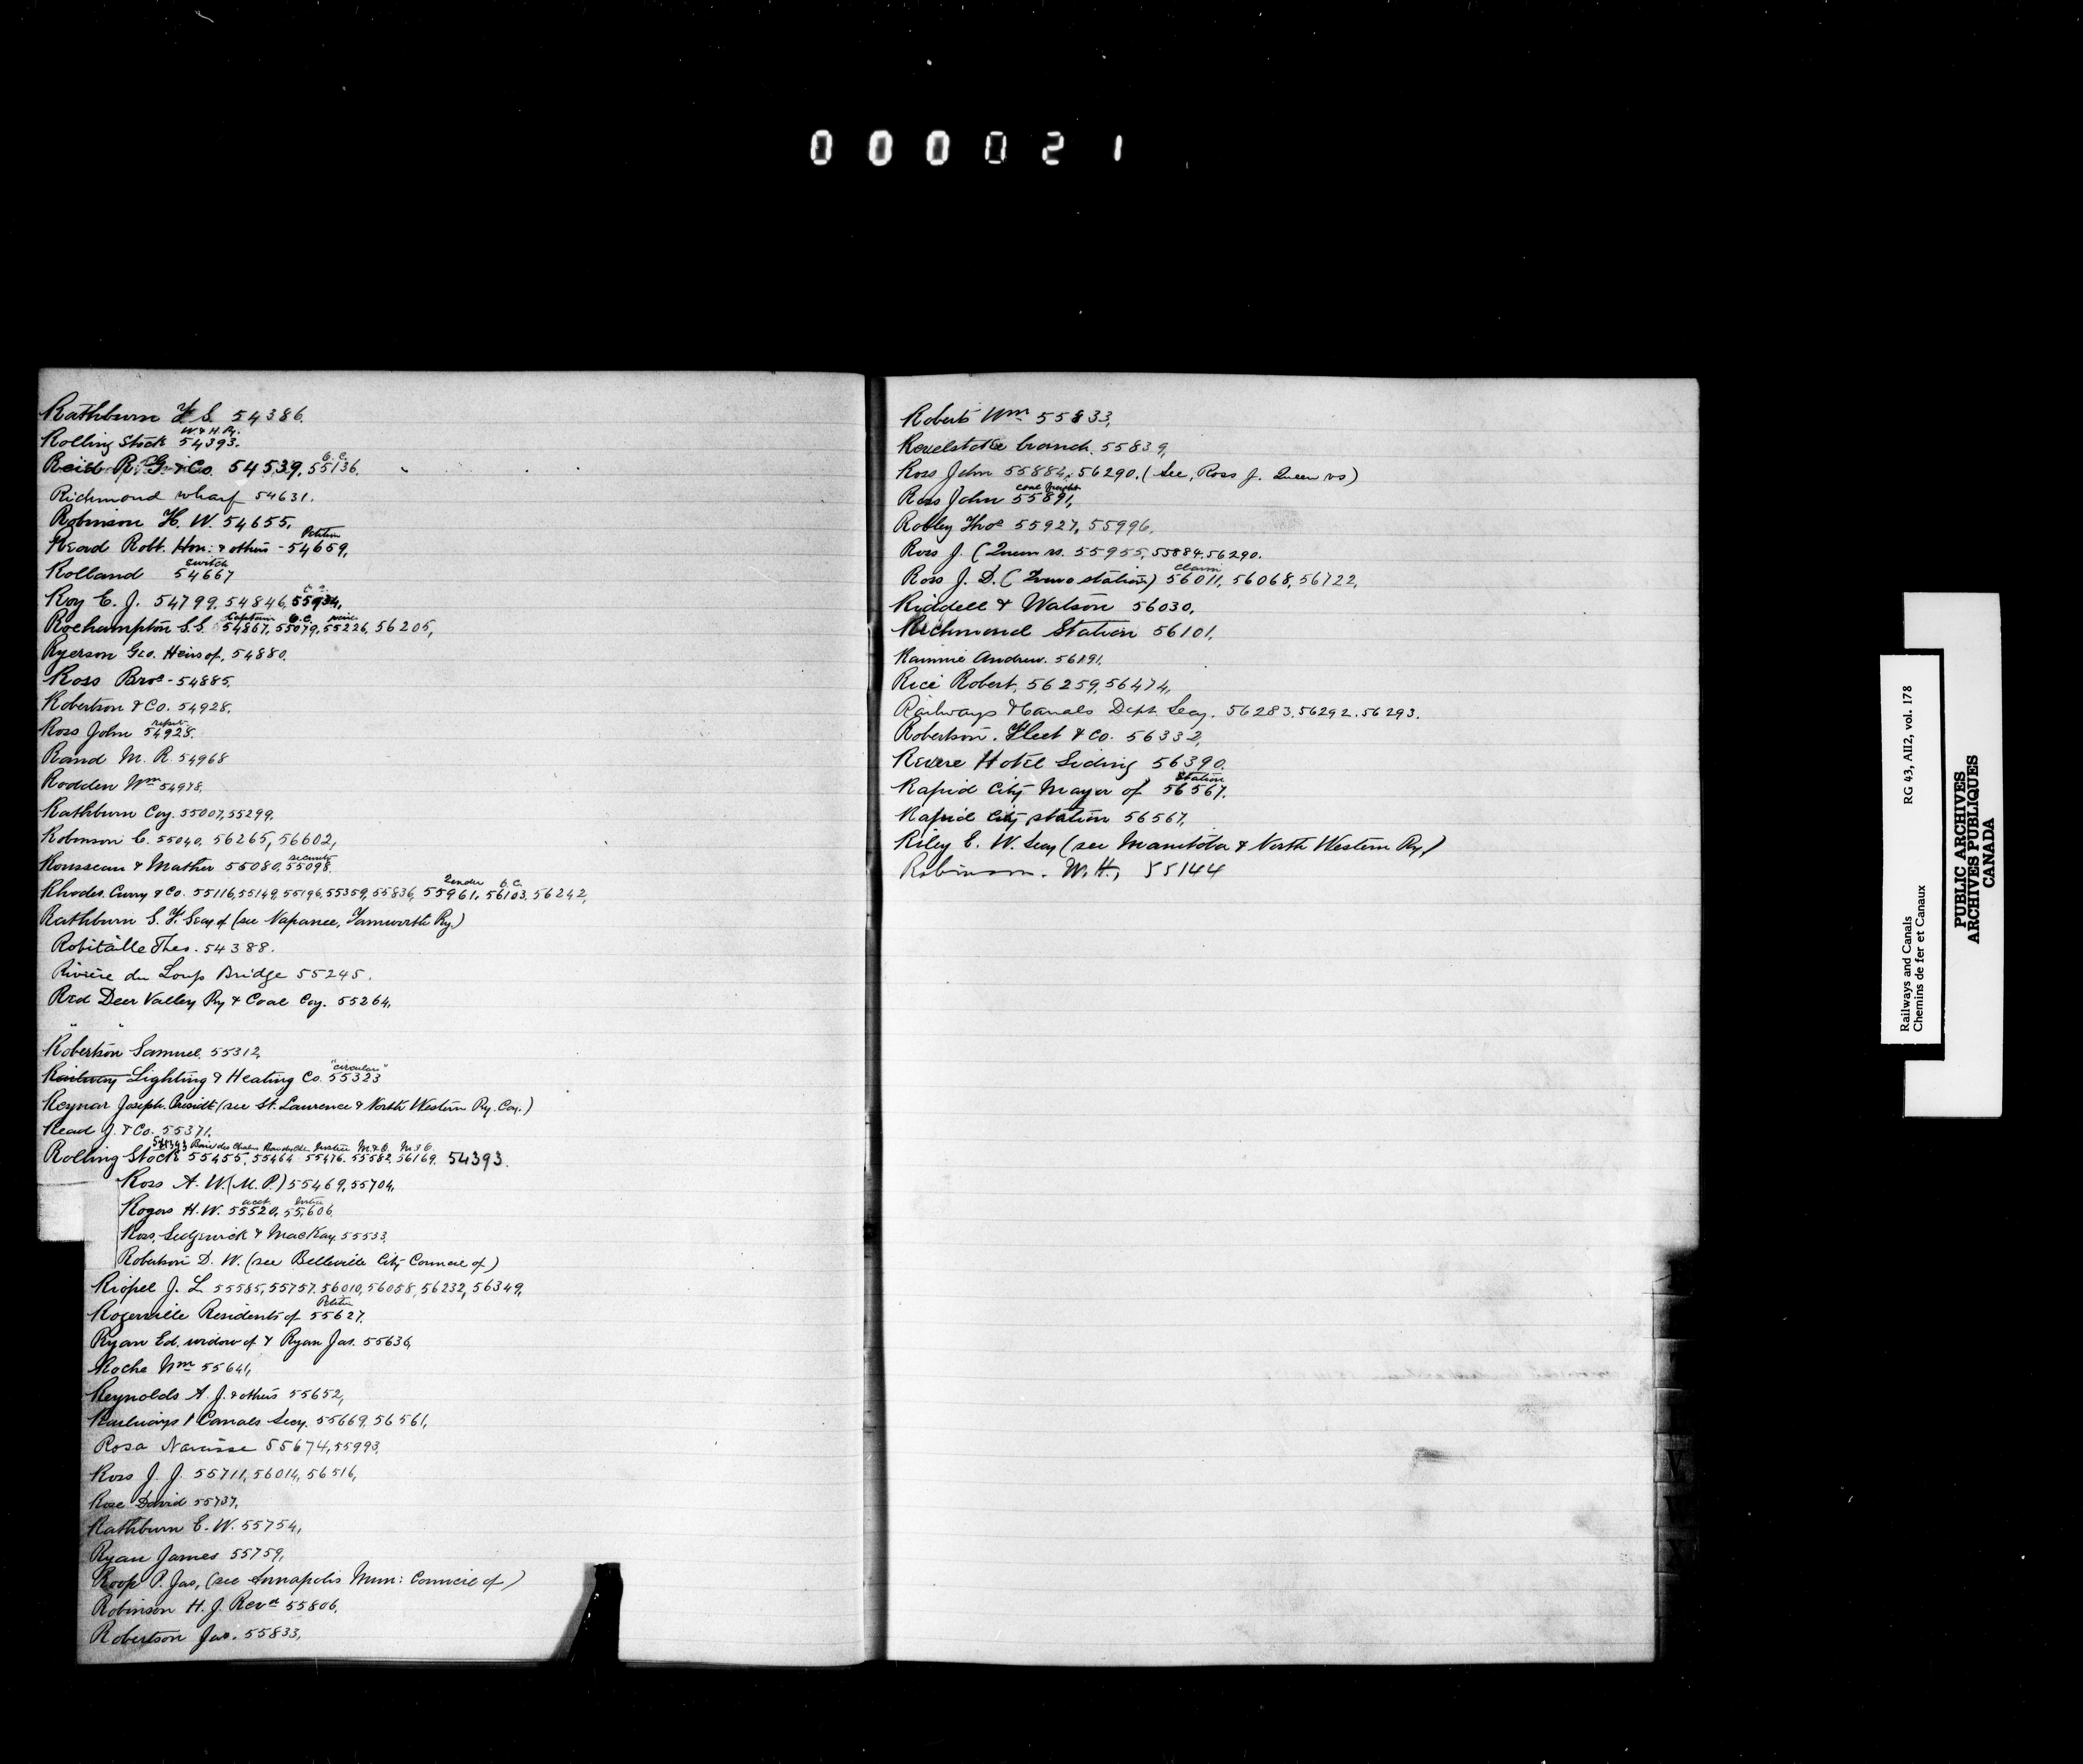 000021
Rathburn F. S. 54386.
W. & H. Ry.
Rolling Stock 54393.
B. C.
Reid R. G. & Co. 54539, 55136,
Richmond wharf 54631.
Robinson H. W. 54655,
Petition
Read Robt. Hon: & others - 54659,
switch
Rolland 54667
Roy E. J. 54799, 54846, 55934,
Captain B.C.
Roehampton S.S. 54867, 55079, 55226, 56205,
Ryerson Geo. Heirs of, 54880.
Ross Bros - 54885,
Robertson & Co. 54928,
report
Ross John 54928.
Rand M. R. 54968
Rodden Wm 54978,
Rathburn Coy. 55007, 55299,
Robinson C. 55040, 56265, 56602,
security
Rousseau & Mather 55080, 55098.
Tender B.C.
Rhodes Curry & Co. 55116, 55149, 55196, 55359, 55836, 55961, 56103, 56242,
Rathburn S. F. Secy of (see Napanee, Tamworth Ry.)
Robitaille Thes. 54388.
Rivière du Loup Bridge 55245.
Red Deer Valley Ry & Coal Coy. 55264,
" "
Robertson Samuel 55312,
"circulars"
Railway Lighting & Heating Co. 55323
Reynar Joseph. Presidt (see St. Lawrence & North Western Ry. Coy.)
Read J. & Co. 55371,
54393 Baie des Chaleurs M.&C. M&C.
Rolling Stock 55455, 55464 55476. 55582, 56169. 54393.
Ross A. W. (M. P.) 55469, 55704,
acct.
Rogers H. W. 55520, 55606,
Ross, Sedgwick & MacKay 55533,
Robertson D. W. (see Belleville City Council of)
Riopel J. L. 55585, 55757, 56010, 56058, 56232, 56349,
Petition
Rogerville Residents of 55627,
Ryan Ed. widow of & Ryan Jas. 55636,
Roche Wm 55641,
Reynolds A. J. & others 55652,
Railways & Canals Secy. 55669, 56561,
Rosa Narcisse 55674, 55993,
Ross J. J. 55711, 56014, 56516,
Rose David 55737,
Rathburn E. W. 55754,
Ryan James 55759,
Roop P. Jas, (see Annapolis Mun: Council of)
Robinson H. J. Revd 55806,
Robertson Jas. 55833,
Roberts Wm 55833,
Revelstoke branch. 55839,
Ross John 55884, 56290. (See, Ross J. Queen vs)
coal freight
Ross John 55891,
Robley Thos 55927, 55996,
Ross J. (Queen vs. 55955, 55884, 56290.
claim
Ross J. D. (Truro station) 56011, 56068, 56722,
Riddell & Watson 56030,
Richmond Station 56101,
Rammie Andrew. 56191,
Rice Robert, 56259, 56474,
Railways & Canals Dept. Secy. 56283, 56292. 56293.
Robertson. Fleet & Co. 56332,
Revere Hotel Siding 56390.
Station
Rapid City Mayor of 56567.
Rapid City station 56567,
Riley E. W. Secy (see Manitoba & North Western Ry.)
Robinson. W. H., 55144
Railways and Canals
Chemins de fer et Canaux
RG 43, AII2, vol. 178
PUBLIC ARCHIVES
ARCHIVES PUBLIQUES
CANADA